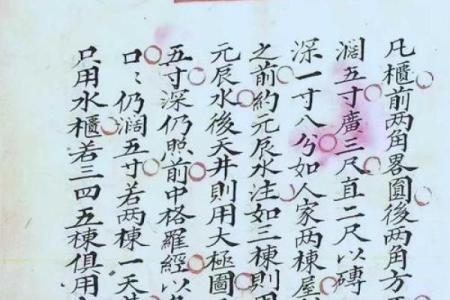 凡櫃前两角畧圓後两角方
濶五寸廣三尺直二尺以磚
深一寸八分如人家两棟屋
之前約元辰水注如三棟則用
元辰水後天井則用大極圖
五寸深仍照前中格羅經以
口〻仍濶五寸若两棟一天井
只用水櫃若三四五棟俱用